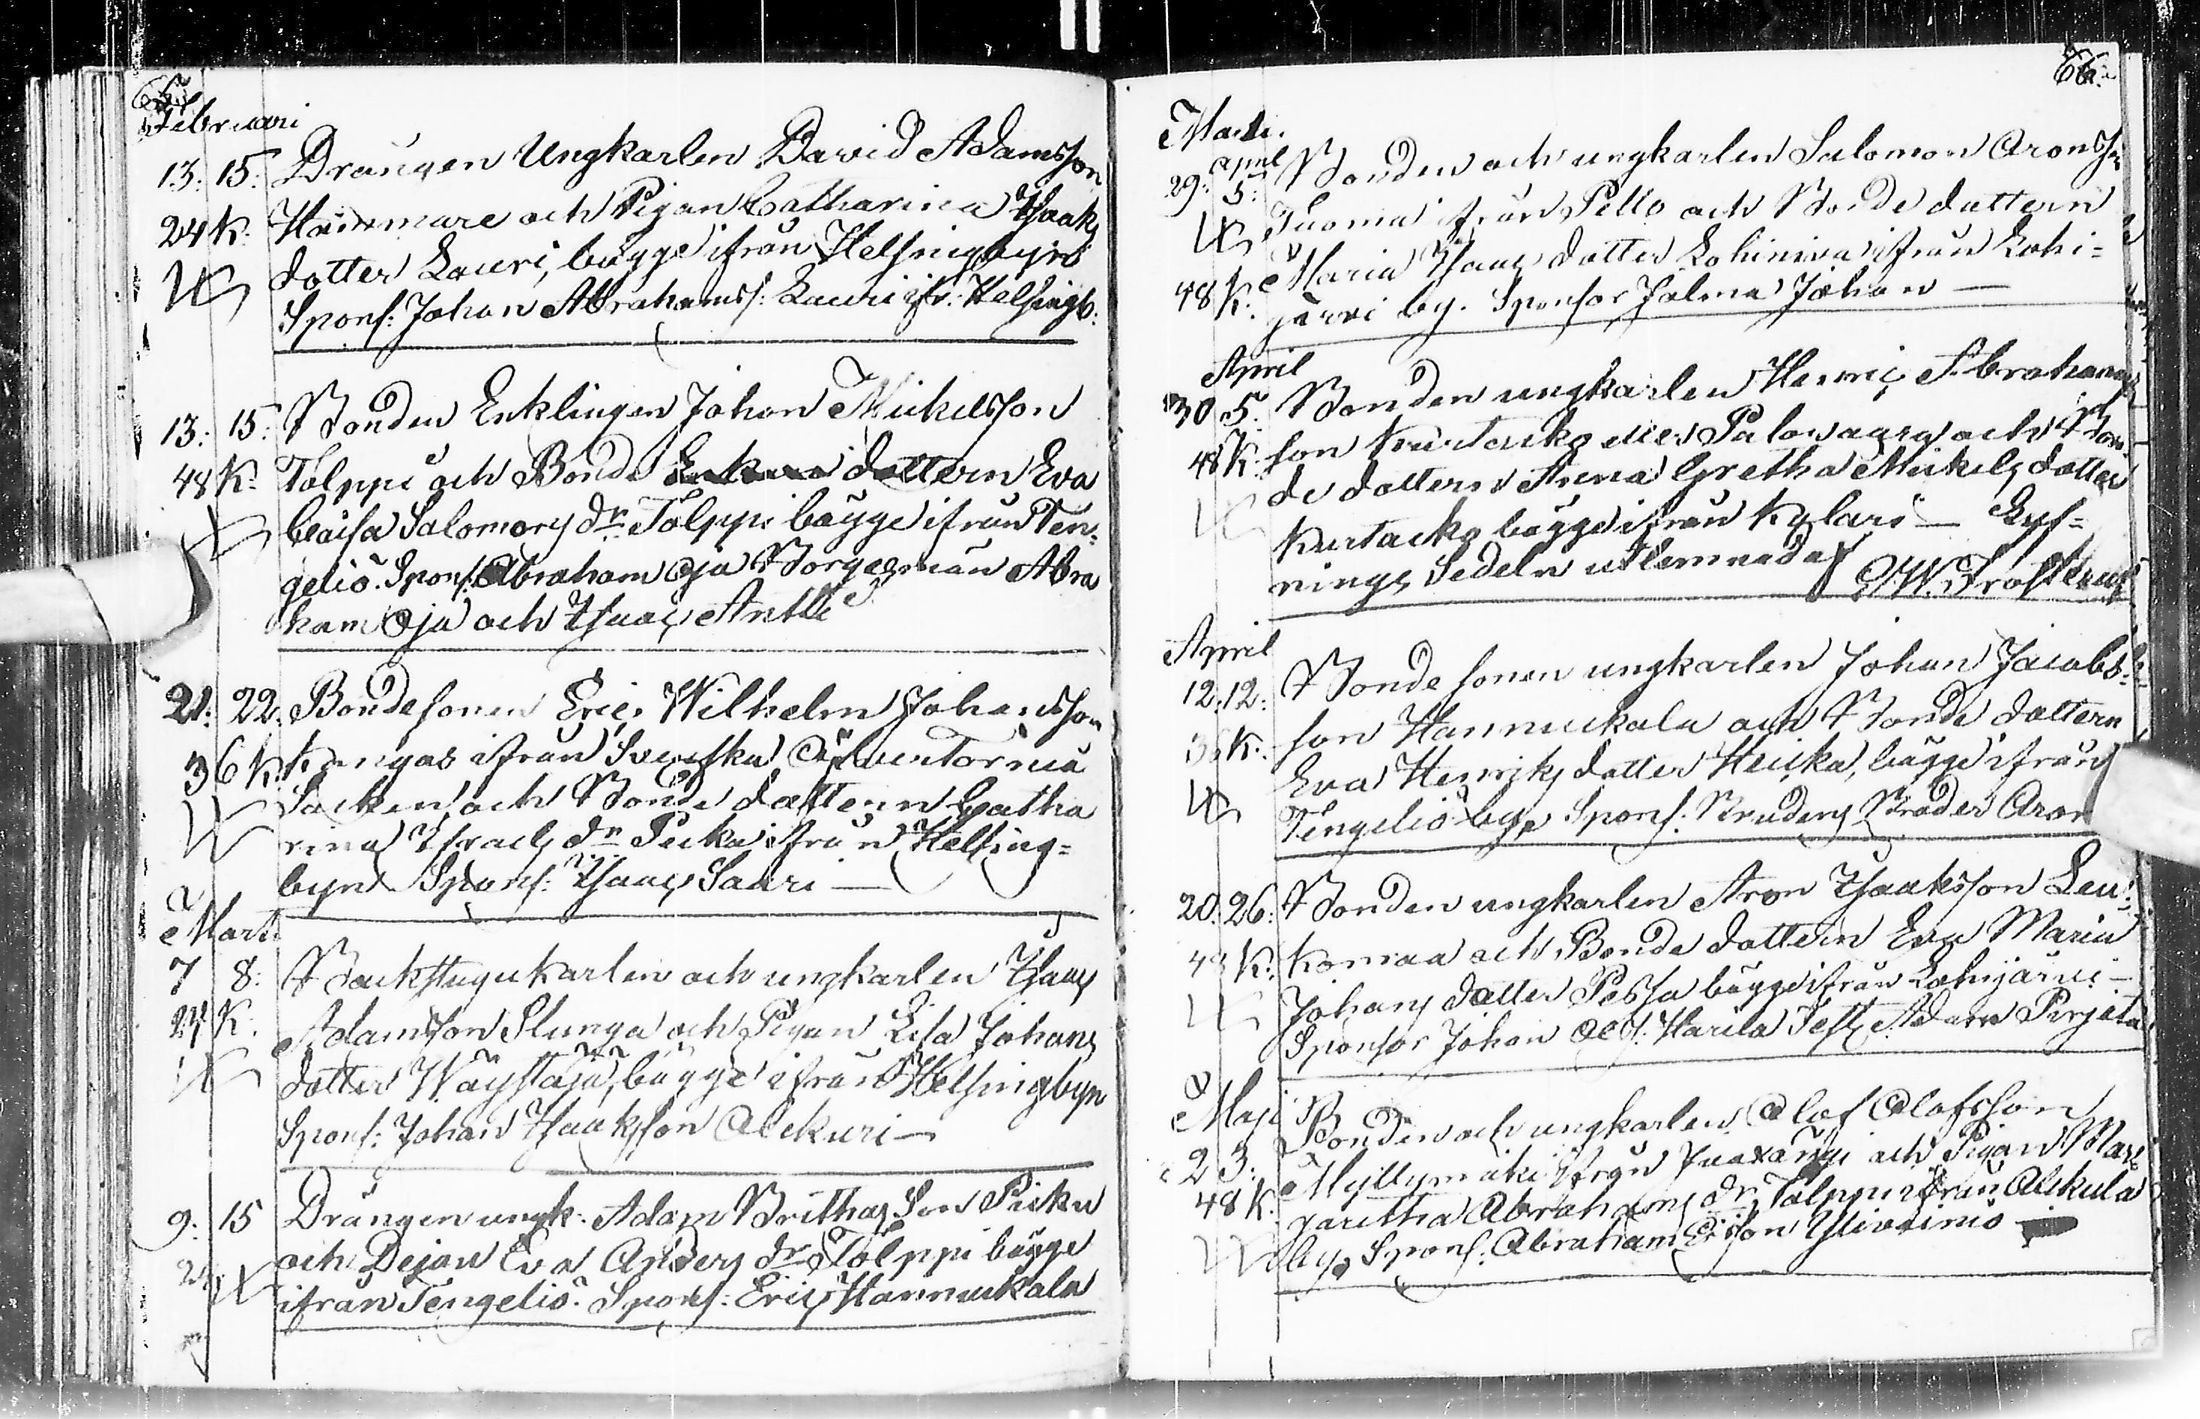 65.
Februari
13. 15. Drängen Ungkarlen David Adamsson
24 K. Hannmare och Pigan Catharina Isaaks
dotter Lauri, bägge ifrån Helsingbyn
Spons: Johan Abrahamss: Lauri ifr: Helsingb:
13: 15: Bonden Enklingen Johan Mickelsson
48 K. Tolppi och Bonde dottern Eva
Caisa Salomons dr Tolppi bägge ifrån Ten-
geliö. Spons: Abraham Oja Borgesman Abra
ham Oja och Isaac Antti
21: 22. Bondesonen Eric Wilhelm Johansson
36 K. Kangas ifrån Svenska Öfvertorneå
Socken, och Bonde dottern Catha
rina Israels dr Pecka ifrån Helsing-
byn Spons: Isaac Saari —
Marti
7 8: Backstugukarlen och ungkarlen Isaac
24 K. Adamsson Slunga och Pigan Lisa Johans
dotter Wäystäjä, bägge ifrån Helsingbyn
Spons: Johan Isaksson Alkuri —
9: 15 Drängen ungk. Adam Brithas Son Picku
24 och Dejan Eva Anders dr Tolppi bägge
ifrån Tengeliö. Spons: Eric Hannukala
66.
Marti.
29: april 5: Bonden och ungkarlen Salomon Aronsson
Tuoma ifrån Pello och Bonde dottern
Maria Isaacs dotter Lohiniva ifrån Lohi-
48 K. järvi by. Sponsor Jolma Johan —
April
30 5. Bonden ungkarlen Henric Abrahams
48 K. son Kurtacko eller Palovaara och Bon
de dottern Anna Gretha Mickels dotter
Kurtacko bägge ifrån Kylari — Lys-
nings Sedeln utlemnad af
April
12. 12: Bonde sonen ungkarlen Johan Jacobs-
36 K. son Hannukala och Bonde dottern
Eva Henriks dotter Heicka, bägge ifrån
Tengeliö by, Spons: Brudens Broder Aron
20. 26: Bonden ungkarlen Aron Isaaksson Leu-
48 K. komaa och Bonde dottern Eva Maria
Johans dotter Pessa bägge ifrån Lohijärvi —
Sponsor Johan Ol: s. Harila Test: Adam Pirjeta
Maji Bonden och ungkarlen Olof Olofsson
2 3: Myllymäki ifrån Juoxängi och Pigan Mar-
48 K. garetha Abrahams dr Tolppi ifrån Alkula
by, Spons: Abraham Ersson Ylivainio —